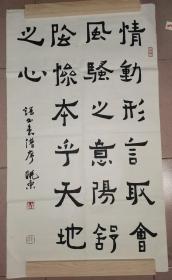 情動形言取會
風騷之意陽舒
陰慘本乎天地
之心
書譜序